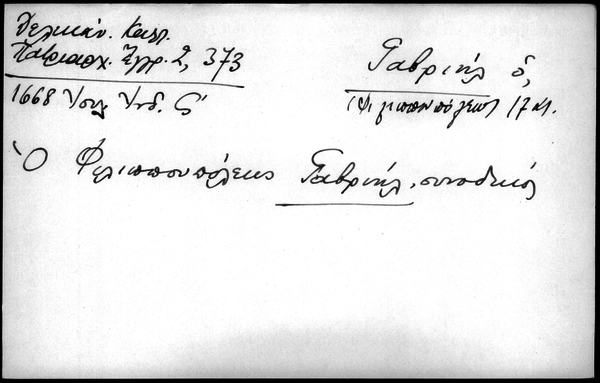 Δελικάν. Καλλ.
Πατριαρχ. Ἔγγρ. 2, 373
1668 Ἰουλ. Ἰνδ. ς′
Γαβριήλ ὁ,
(Φιλιππουπόλεως) 17 αι.
Ὁ Φιλιππουπόλεως Γαβριήλ, συνοδικός